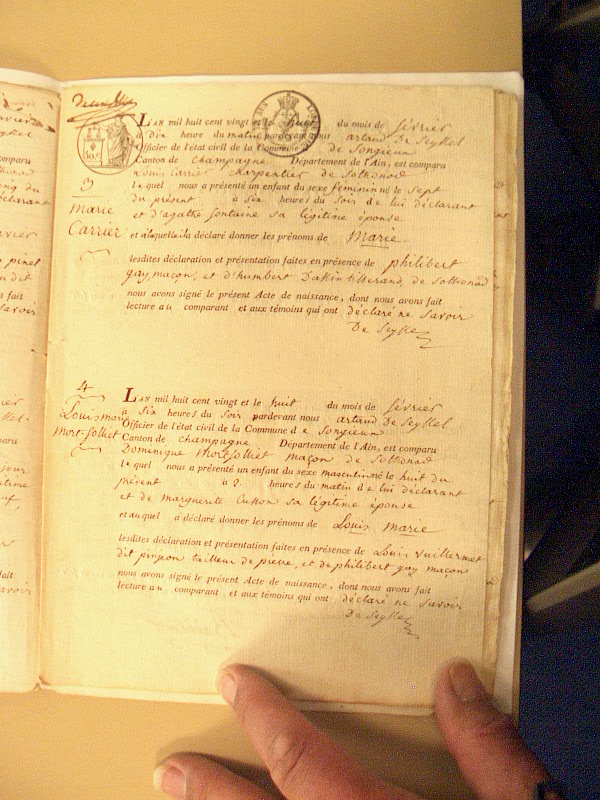 3
Marie
Carrier
LAN mil huit cent vingt et le huit du mois de février
à dix heure du matin pardevant nous artaud De Seyssel
Officier de l'état civil de la Commune de Songieux
Canton de champagne Département de l'Ain, est comparu
Louis Carrier Charpentier de Sothonod
lequel nous a présenté un enfant du sexe féminin né le sept
du présent à six heures du soir de lui déclarant
et d'agathe fontaine sa légitime épouse
et auquel a déclaré donner les prénoms de Marie
lesdites déclaration et présentation faites en présence de philibert
gay maçon, et d'humbert tisserand, de Sothonod
nous avons signé le présent Acte de naissance, dont nous avons fait
lecture au comparant et aux témoins qui ont déclaré ne savoir
De Seyssel
4
Louis marie
Mort-folliet
LAN mil huit cent vingt et le huit du mois de février
à six heures du soir pardevant nous artaud De Seyssel
Officier de l'état civil de la Commune de Songieux
Canton de champagne Département de l'Ain, est comparu
Dominique Mortfolliet maçon de Sothonod
lequel nous a présenté un enfant du sexe masculin né le huit du
présent à 2 heures du matin de lui déclarant
et de marguerite sa légitime épouse
et auquel a déclaré donner les prénoms de Louis marie
lesdites déclaration et présentation faites en présence de Louis Vuillermet
dit tailleur de pierre, et de philibert gay maçon
nous avons signé le présent Acte de naissance, dont nous avons fait
lecture au comparant et aux témoins qui ont déclaré ne savoir
De Seyssel